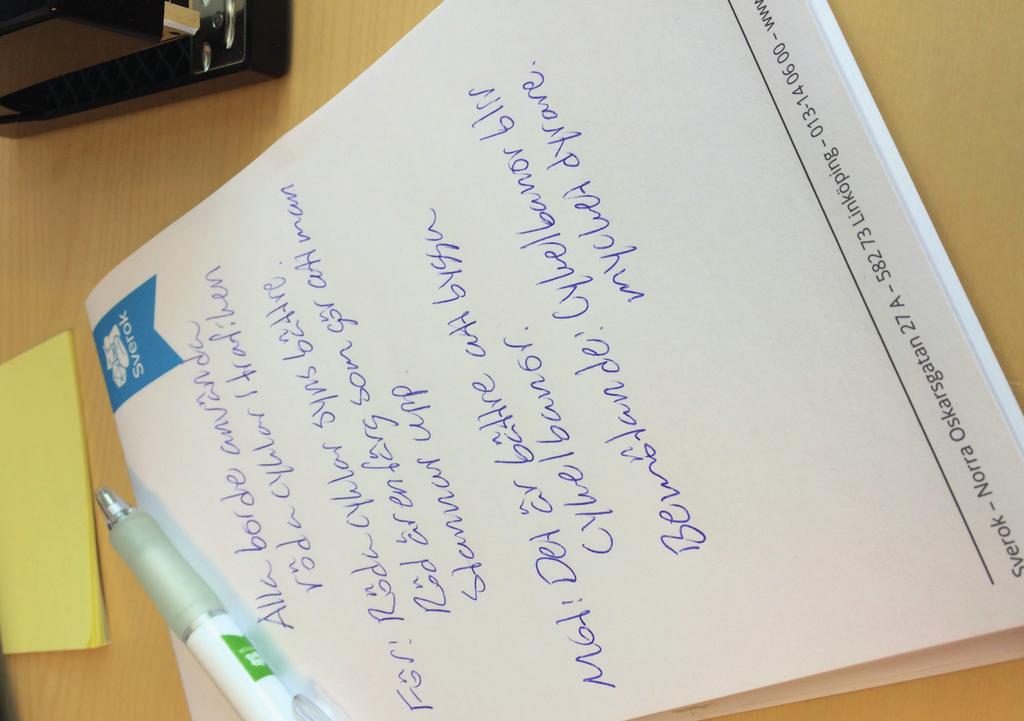 Sverok
Alla borde använda
röda cyklar i trafiken
För: Röda cyklar syns bättre.
Röd är en färg som gör att man
stannar upp.
Mot: Det är bättre att bygga
Cykelbanor.
Bemötande: Cykelbanor blir
mycket dyrare.
Sverok – Norra Oskarsgatan 27 A – 582 73 Linköping – 013-14 06 00 – www